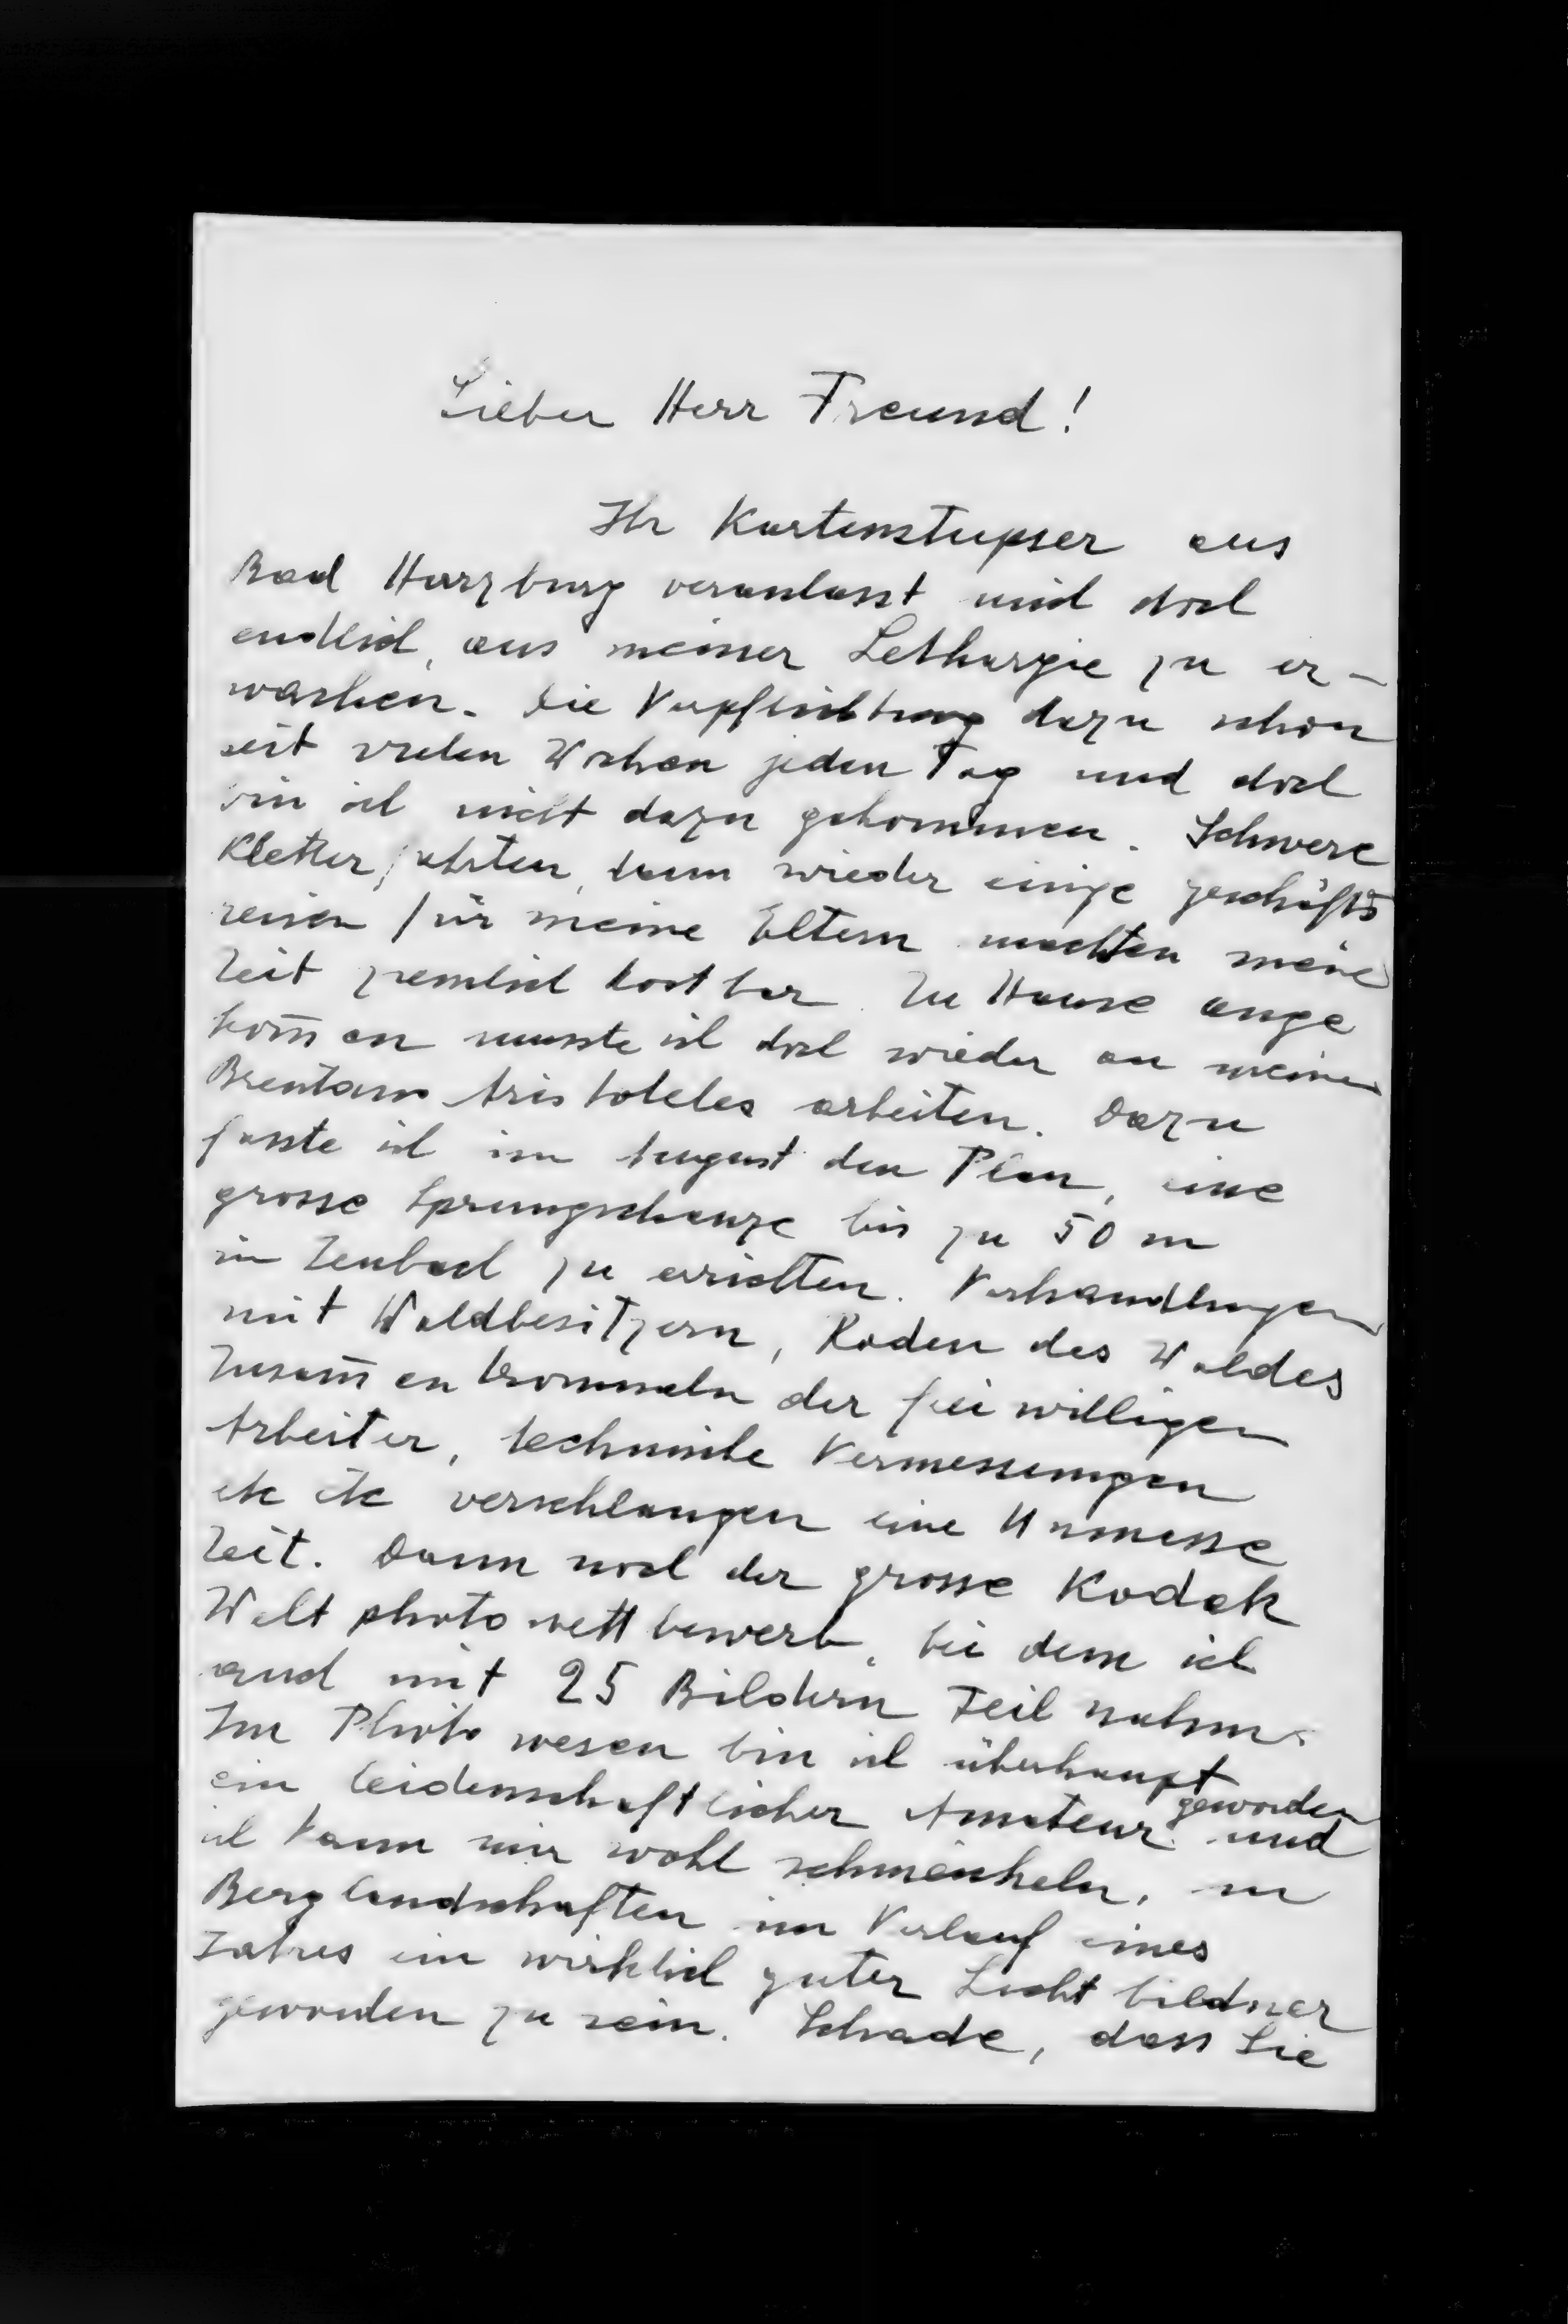 Lieber Herr Freund!
Ihr Kartenstupser aus
Bad Harzburg veranlasst mich doch
endlich, aus meiner Lethargie zu er-
wachen. Die Verpflichtung dazu schon
seit vielen Wochen jeden Tag und doch
bin ich nicht dazu gekommen. Schwere
Kletterfahrten, dann wieder einige geschäfts
reisen für meine Eltern machten meine
Zeit ziemlich kostbar. Zu Hause ange
kom̅en musste ich doch wieder an meinen
Brentano Aristoteles arbeiten. Dazu
fasste ich im August den Plan, eine
grosse Sprungschanze bis zu 50 m
in zu errichten. Verhandlungen
mit Waldbesitzern, Roden des Waldes
Zusam̅entrommeln der freiwilligen
Arbeiter, technische Vermessungen
etc etc verschlangen eine Unmasse
Zeit. Dann noch der grosse Kodak
Weltphotowettbewerb, bei dem ich
auch mit 25 Bildern Teil nahm.
Im Photowesen bin ich überhaupt
ein leidenschaftlicher Amateur geworden und
ich kann mir wohl schmeicheln, in
Berglandschaften im Verlauf eines
Jahres ein wirklich guter Lichtbildner
geworden zu sein. Schade, dass Sie